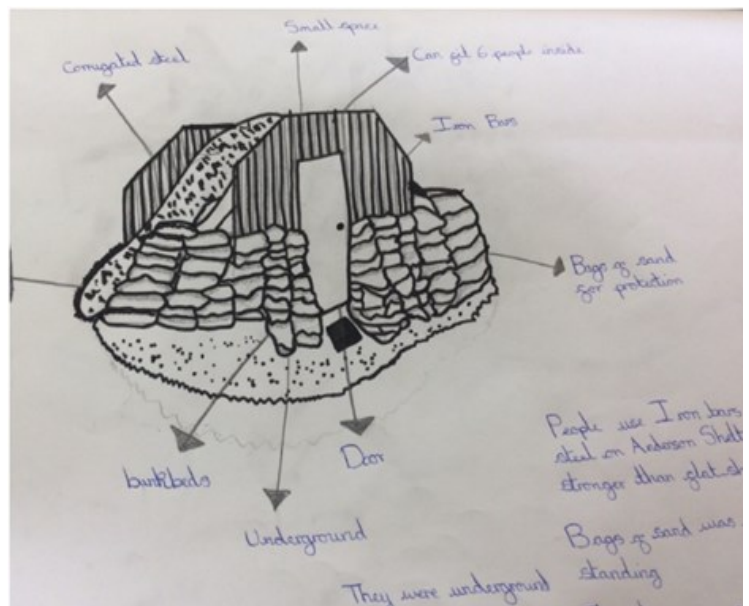 Small space
Corrugated steel
Can get 6 people inside
Iron Bars
Bags of sand
for protection
bunkbeds
Door
Underground
People use Iron bars
steel on Anderson
stronger than flat
Bags of sand was
standing
They were underground